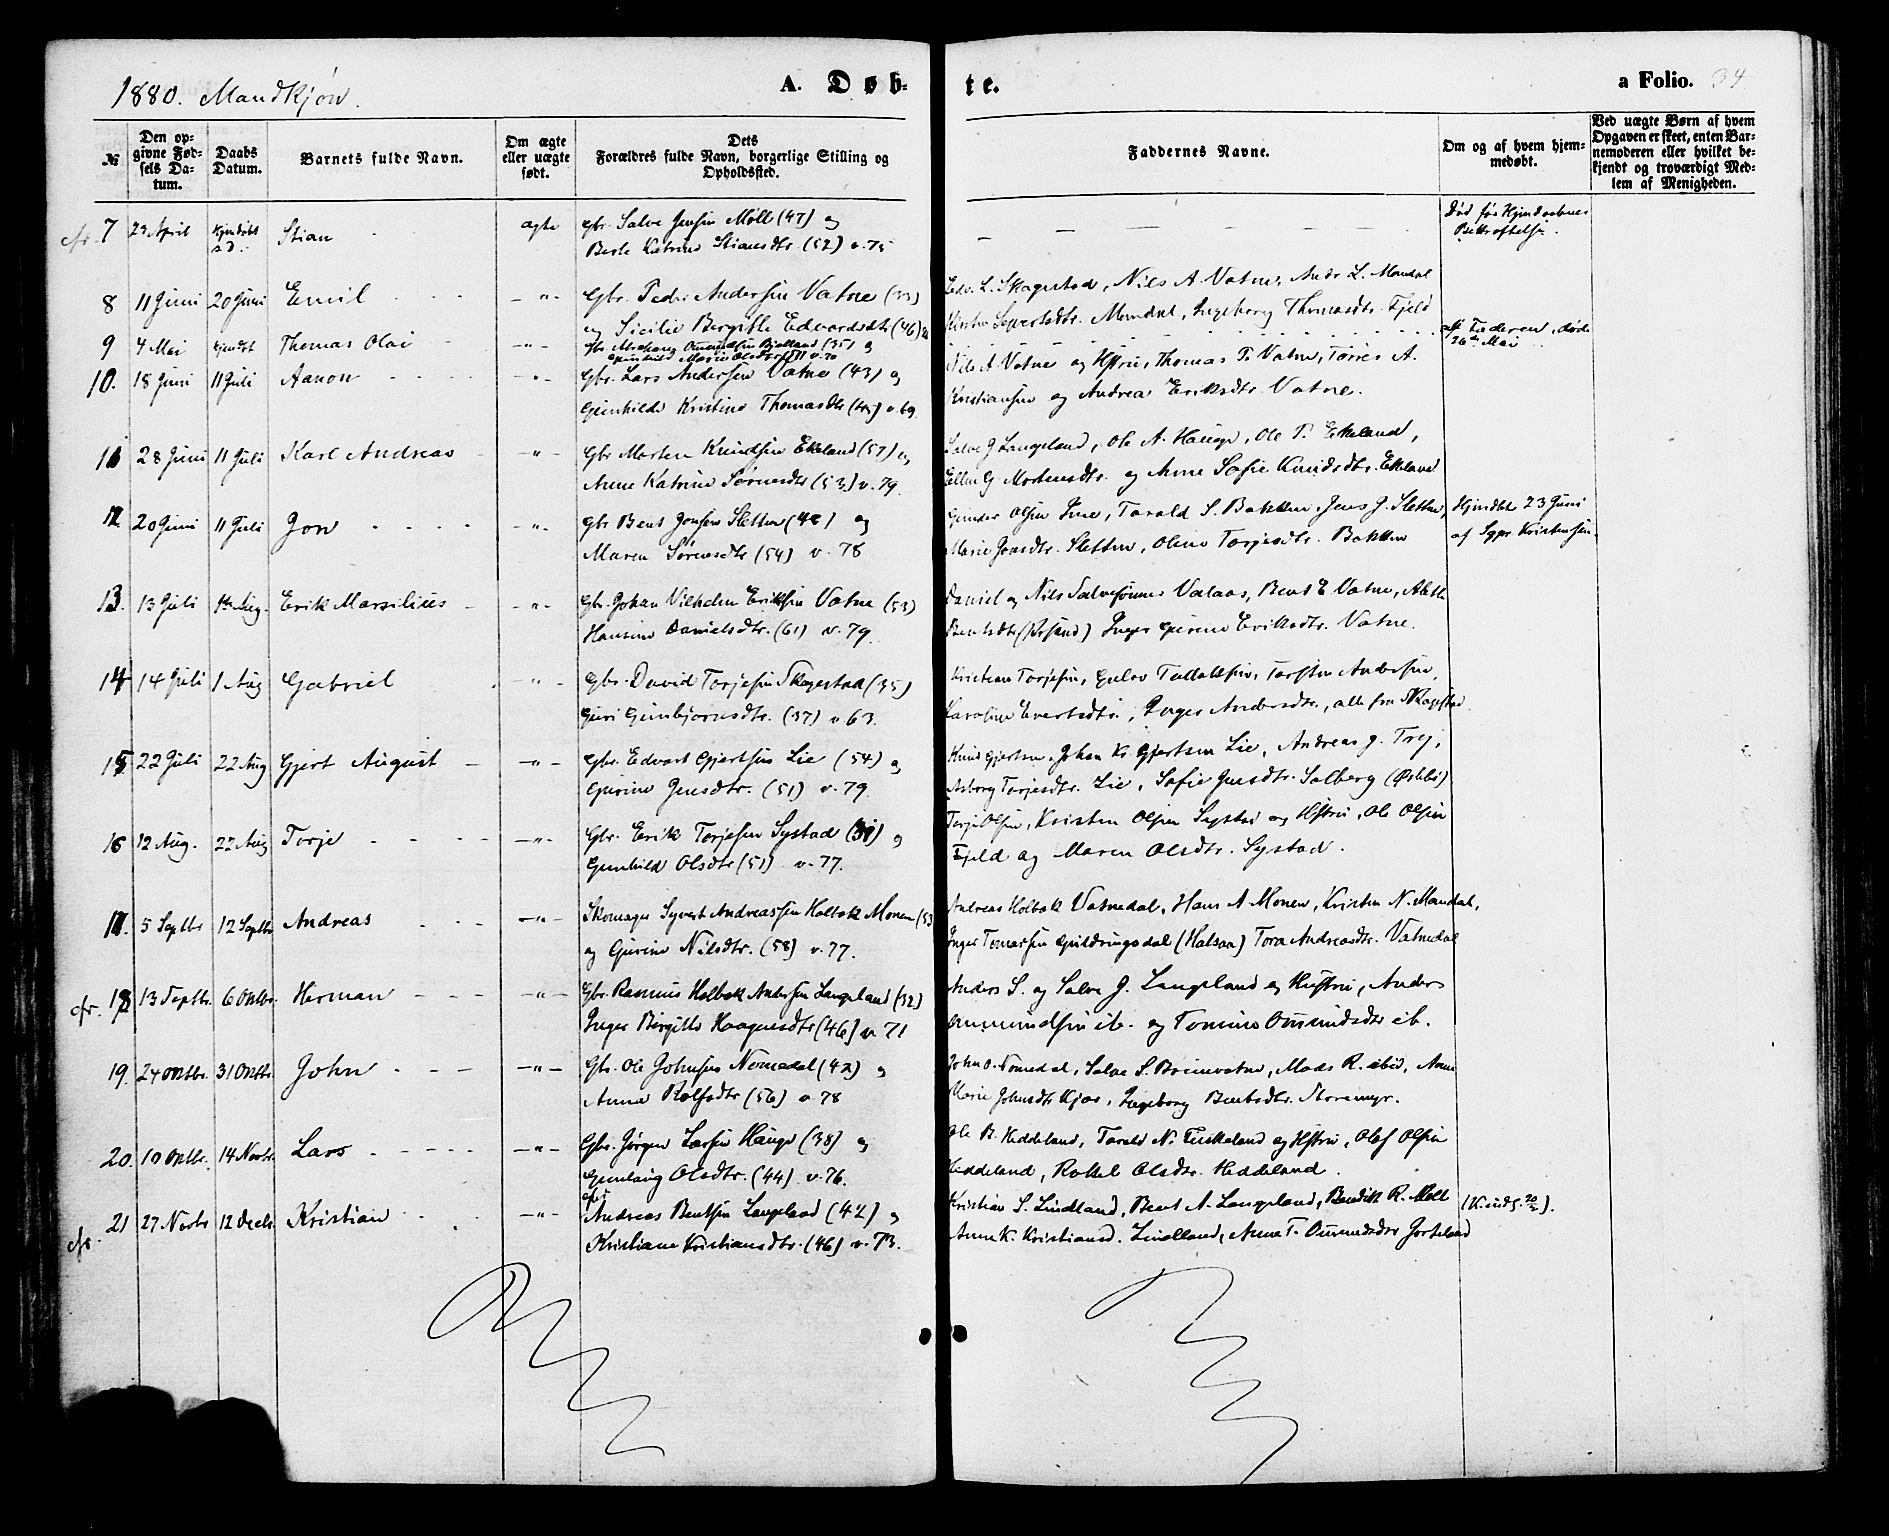 1880. Mandkjøn.
A. Døb-
te.
a Folio. 34
№
Den opgivne Fødsels Datum.
Daabs Datum.
Barnets fulde Navn.
Om ægte eller uægte født.
Dets Forældres fulde Navn, borgerlige Stilling og Opholdssted.
Faddernes Navne.
Om og af hvem hjemmedøbt.
Ved uægte Børn af hvem Opgaven er skeet, enten Barnemoderen eller hvilket bekjendt og troværdigt Medlem af Menigheden.
cfr. 7 23 April Stian ægte Gbr. Salve Jensen Møll (47) og
Berte Katrine Stiansdtr. (52) v. 75
Død før Hjmdaabens
Bekræftelse.
8 11 Juni 20 Juni Emil - " - Gbr. Peder Andersen Vatne (33)
og Sicilie Bergitte Edvardsdtr (46)
Edv. L. Skagestad, Nils A. Vatne, Andr. L. Mandal
Kirsten Syvertsdtr. Mandal, Ingeborg Thomasdtr. Fjeld
9 4 Mai hjmdbt Thomas Olai Gbr. Abraham Omundsen Bjelland (35) og
Gunhild Marie Olsdtr v. 70
af Faderen, døde
26de Mai
10. 18 Juni 11 Juli Aanon - " - Gbr. Lars Andersen Vatne (43) og
Gunhilde Kristine Thomasdtr (45) v. 69.
Nils A Vatne og Hstru, Thomas P. Vatne, Torres A.
Kristiansen og Andrea Eriksdtr. Vatne.
11 28 Juni 11 Juli Karl Andreas - " - Gbr Morten Knudsen Ekeland (57) og
Anne Katrine Sørensdtr (53) v. 79.
Salve G Langeland, Ole A. Hauge, Ole P. Ekeland,
Ellen G Mortensdtr. og Anne Sofie Knudsdtr. Ekeland
12 20 Juni 11 Juli Jon - " - Gbr Bent Jonsen Sletten (48) og
Maren Sørensdtr (54) v. 78
Gunder Olsen Ime, Tarald S. Bakken, Jens J. Sletten,
Marie Jonsdtr. Sletten, Oline Torjesdtr. Bakken
Hjmdbt 23 Juni
af Sgpr. Kristensen.
13. 13 Juli 1ste Aug. Erik Marsilius - " - Gbr. Johan Vilhelm Eriksen Vatne (53)
Hansine Danielsdtr. (61) v. 79.
Daniel og Nils Salvesønner Valaas, Bent E. Vatne, Aleth
Bentsdtr (Øfsund) Inger Gurine Eriksdtr. Vatne.
14 14 Juli 1 Aug Gabriel - " - Gbr. David Torjesen Skagestad (35)
Guri Gunbjørnsdtr. (37) v 63.
Kristian Torjesen, Gulov Tallaksen, Torsten Andersen,
Karoline Evertsdtr., Inger Andersdtr., alle fra Skagestad.
15 22 Juli 22 Aug Gjert August - " - Gbr. Edvart Gjertsen Lie (54) og
Gurine Jensdtr. (51) v. 79.
Knud Gjertsen, Johan Kr. Gjertsen Lie, Andreas J. Trej,
Asborg Torjesdtr. Lie, Sofie Jensdtr. Solberg (Øslebø)
16 12 Aug. 22 Aug Torje - " - Gbr. Erik Torjesen Systad (31) og
Gunhild Olsdtr (51) v. 77.
Torje Olsen, Kristen Olsen Systad og Hstru, Ole Olsen
Fjeld og Maren Olsdtr. Systad.
17. 5 Septbr 12 Septbr Andreas - " - Skomager Syvert Andreassen Holbæk Monen (53
og Gurine Nilsdtr. (58) v. 77.
Andreas Holbæk Vatnedal, Hans A Monen, Kristen N. Mandal,
Inger Tomassen Guldringsdal (Halsaa) Tora Andreasdtr. Vatnedal
cfr. 18 13 Septbr. 6 Oktbr. Herman - " - Gbr. Rasmus Holbæk Andersen Langeland (32)
Inger Birgitte Haagensdtr (46) v. 71
Anders S. og Salve G. Langeland og Hustru, Anders
Ommundsen ib. og Tomine Omundsdtr ib.
19. 24 Oktbr. 31 Oktbr. John - " - Gbr. Ole Johnsen Nomedal (42) og
Anne Rolfsdtr (56) v 78
John O. Nomedal, Salve S. Breimvatne, Mads R. ibid, Anne
Marie Johnsdtr Kjær, Ingeborg Bentsdtr. Storemyr.
20. 10 Oktbr. 14 Novbr. Lars - " - Gbr. Jørgen Larsen Hauge (38) og
Gunlaug Olsdtr. (44) v. 76.
Ole B. Heddeland, Tarald N. Fuskeland og Hstru, Olaf Olsen
Heddeland, Rakel Olsdtr. Heddeland.
cfr. 21 27 Novbr 12 Decbr. Kristian - " - Andreas Bentsen Langeland (42) og
Kristiane Kristiansdtr. (46) v. 73.
Kristian S. Lindland, Bent A. Langeland, Bendik R. Møll
Anne K. Kristiansd. Lindland, Anne T. Ommundsdtr Jorteland